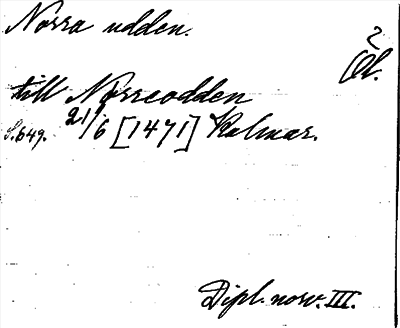 Norra udden.
?
Öl.
till Norreodden
S. 649. 21/6 [1471] Kalmar.
Dipl. norv. III.